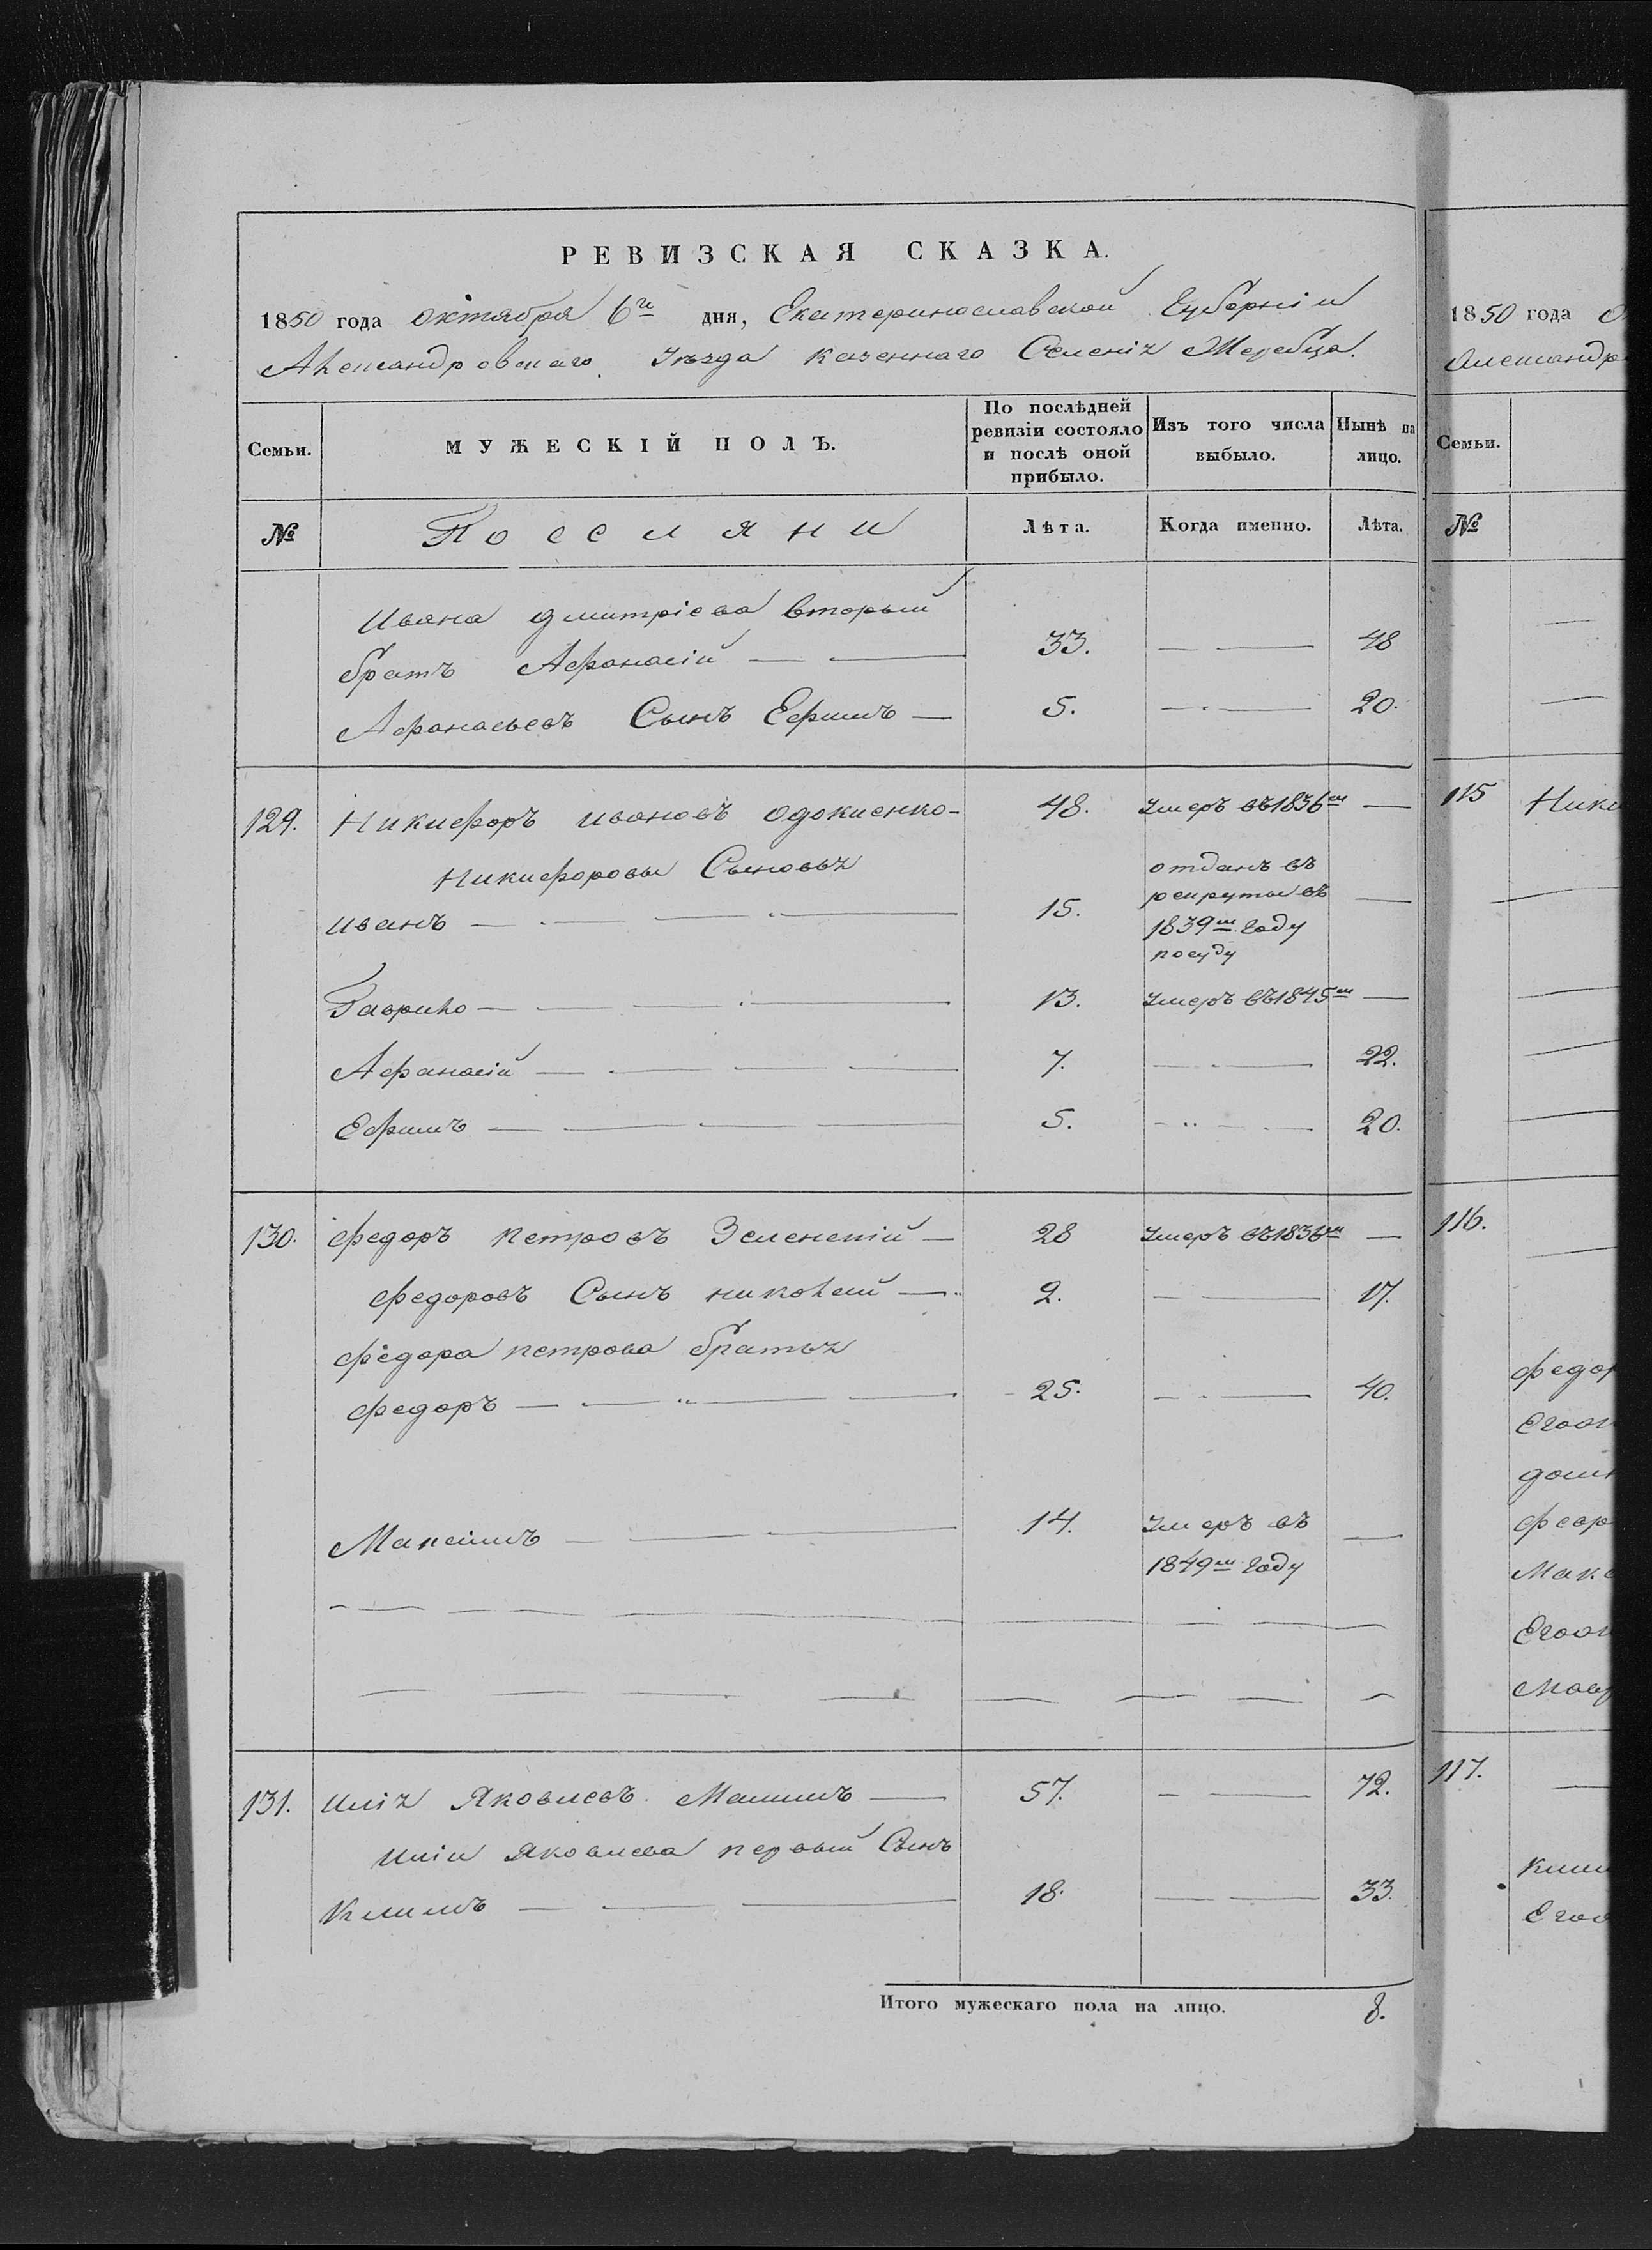 РЕВИЗСКАЯ СКАЗКА.
1850 года октября 6го дня, Екатеринославской Губерніи
Александровскаго Уѣзда казеннаго Селенія Жеребца.
Семьи. МУЖЕСКІЙ ПОЛЪ. По послѣдней ревизіи состояло и послѣ оной прибыло. Изъ того числа выбыло. Нынѣ на лицо.
№ Поселяни Лѣта. Когда именно. Лѣта.
Ивана Дмитріева вторый
братъ Афанасій 33. 48
Афанасьевъ Сынъ Ефимъ 5. 20.
129. Никифоръ ивановъ 48. Умеръ въ 1836м
Никифоровы Сыновья
иванъ 15. отданъ въ
рекруты въ
1839м году
Гаврило 13. Умеръ въ 1845м
Афанасій 7. 22.
Ефимъ 5. 20.
130. Федоръ Петровъ Зеленскій 28 Умеръ въ 1836м
Федоровъ Сынъ николай 2. 17.
Федора петрова братья
Федоръ 25. 40.
Максимъ 14. Умеръ въ
1849м году
131. Илія Яковлевъ 57. 72.
Иліи Яковлева первый Сынъ
Климъ 18. 33.
Итого мужескаго пола на лицо. 8.
1850 года
Александр
Семьи.
№
115 Ники
116.
Федор
дом
Мак
117.